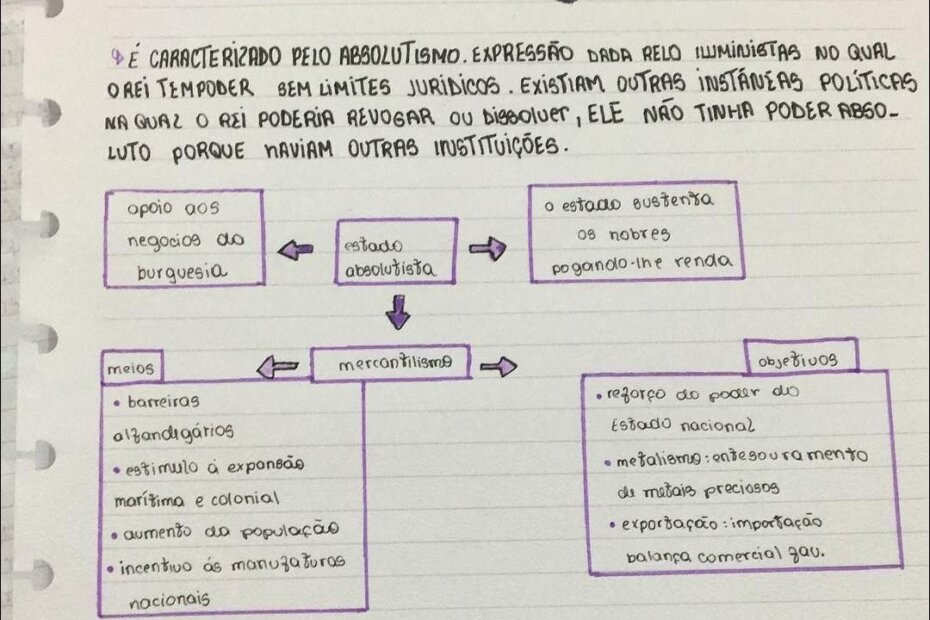 É CARACTERIZADO PELO ABSOLUTISMO. EXPRESSÃO DADA PELO ILUMINISTAS NO QUAL
O REI TEM PODER SEM LIMITES JURÍDICOS. EXISTIAM OUTRAS INSTÂNCIAS POLÍTICAS
NA QUAL O REI PODERIA REVOGAR OU DISSOLVER, ELE NÃO TINHA PODER ABSO-
LUTO PORQUE HAVIAM OUTRAS INSTITUIÇÕES.
apoio aos
negocios da
burguesia
estado
absolutista
o estado sustenta
os nobres
pagando-lhe renda
mercantilismo
meios
• barreiras
alfandegárias
• estimulo á expansão
marítima e colonial
• aumento da população
• incentivo ás manufaturas
nacionais
objetivos
• reforço do poder do
Estado nacional
• metalismo: entesouramento
de metais preciosos
• exportação: importação
balança comercial fav.